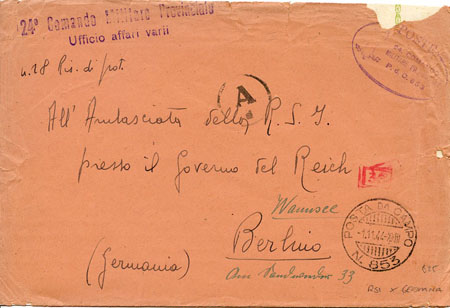 24° Comando Militare Provinciale
Ufficio affari varii
n. 28 Ris. di prot.
A
All' Ambasciata della R.S.I.
presso il Governo del Reich
Wannsee
Berlino
(Germania)
Am Sandwerder 33
POSTA DA CAMPO
-1.11.44
N. 853
RSI x GERMANIA